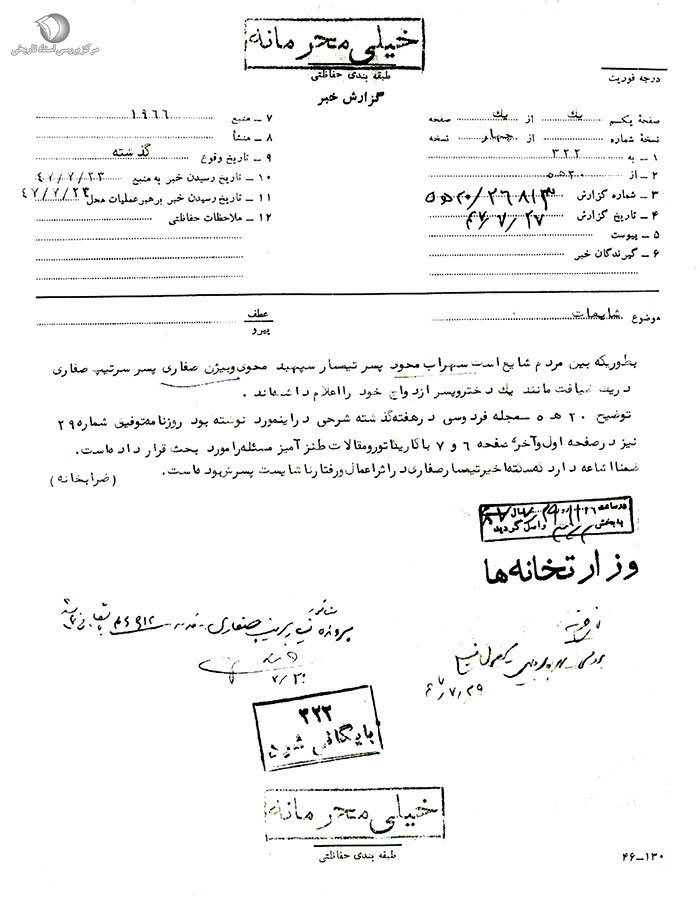 مرکز بررسی اسناد تاریخی
خیلی محرمانه
طبقه بندی حفاظتی
درجه فوریت
گزارش خبر
صفحه یکم یک از یک صفحه
نسخه شماره از چهار نسخه
۱ ـ به ۳۲۲
۲ ـ از ۲۰ ه ۵
۳ ـ شماره گزارش ۲۶۸۱۳/۲۰ ه ۵
۴ ـ تاریخ گزارش ۴۷/۷/۲۷
۵ ـ پیوست
۶ ـ گیرندگان خبر
۷ ـ منبع ۱۹۶۶
۸ ـ منشأ
۹ ـ تاریخ وقوع گذشته
۱۰ ـ تاریخ رسیدن خبر به منبع ۴۷/۷/۲۳
۱۱ ـ تاریخ رسیدن خبر برهبر عملیات محل ۴۷/۷/۲۴
۱۲ ـ ملاحظات حفاظتی
موضوع شایعات
عطف
پیرو
بطوریکه بین مردم شایع است سهراب محوی پسر تیمسار سپهبد محوی و بیژن صفاری پسر سرتیپ صفاری
در یک ضیافت مانند یک دختر و پسر ازدواج خود را اعلام داشته‌اند .
توضیح ۲۰ ه ۵ ـ مجله فردوسی در هفته گذشته شرحی در اینمورد نوشته بود روزنامه توفیق شماره ۲۹
نیز در صفحه اول و آخر و صفحه ۶ و ۷ با کاریکاتور و مقالات طنز آمیز مسئله را مورد بحث قرار داده است.
ضمنا اشاعه دارد که سکته اخیر تیمسار صفاری در اثر اعمال و رفتار ناشایست پسرش بوده است. (ضرابخانه)
در ساعت
به بخش ۳۲۲ واصل گردید
وزارتخانه ها
پرونده
۷/۳۰
۴۷/۷/۲۹
۳۲۲
بایگانی شود
خیلی محرمانه
طبقه بندی حفاظتی
۴۶-۱۳۰